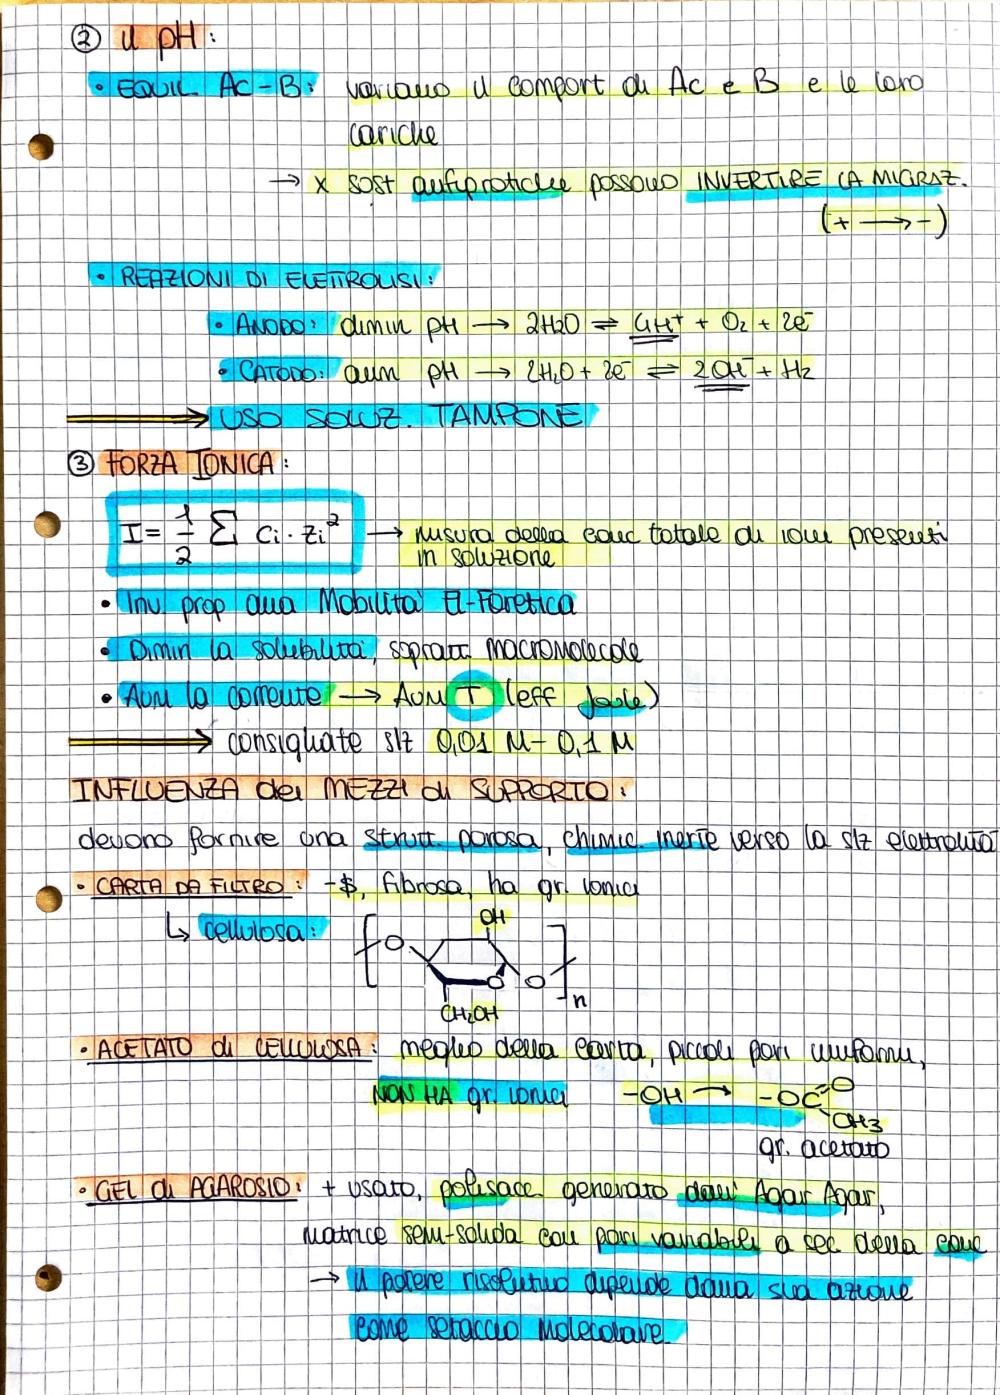 ② Il pH:
• EQUIL. AC-B: variano il comport di Ac e B e le loro
cariche
→ x sost anfiprotiche possono INVERTIRE LA MIGRAZ.
(+ → -)
• REAZIONI DI ELETTROLISI:
• ANODO: dimin pH → 2H2O ⇌ 4H⁺ + O₂ + 2e⁻
• CATODO: aum pH → 2H₂O + 2e⁻ ⇌ 2OH⁻ + H₂
→ USO SOLUZ. TAMPONE
③ FORZA IONICA:
I = 1/2 Σ Ci · Zi² → misura della conc totale di ioni presenti
in soluzione
• Inv prop alla Mobilità El-Foretica
• Dimin la solubilità, sopratt macromolecole
• Aum la corrente → Aum T (eff Joule)
→ consigliate slz 0,01 M - 0,1 M
INFLUENZA dei MEZZI di SUPPORTO:
devono fornire una strutt. porosa, chimic. inerte verso la slz elettrolita
• CARTA DA FILTRO: -$, fibrosa, ha gr. ionici
↳ cellulosa:
OH
O
O O
n
CH₂OH
• ACETATO di CELLULOSA: meglio della carta, piccoli pori uniformi,
NON HA gr. ionici -OH → -OC=O
CH3
gr. acetato
• GEL di AGAROSIO: + usato, polisacc generato dall'Agar Agar,
matrice semi-solida con pori variabili a sec della conc
→ il potere risolutivo dipende dalla sua azione
come setaccio molecolare